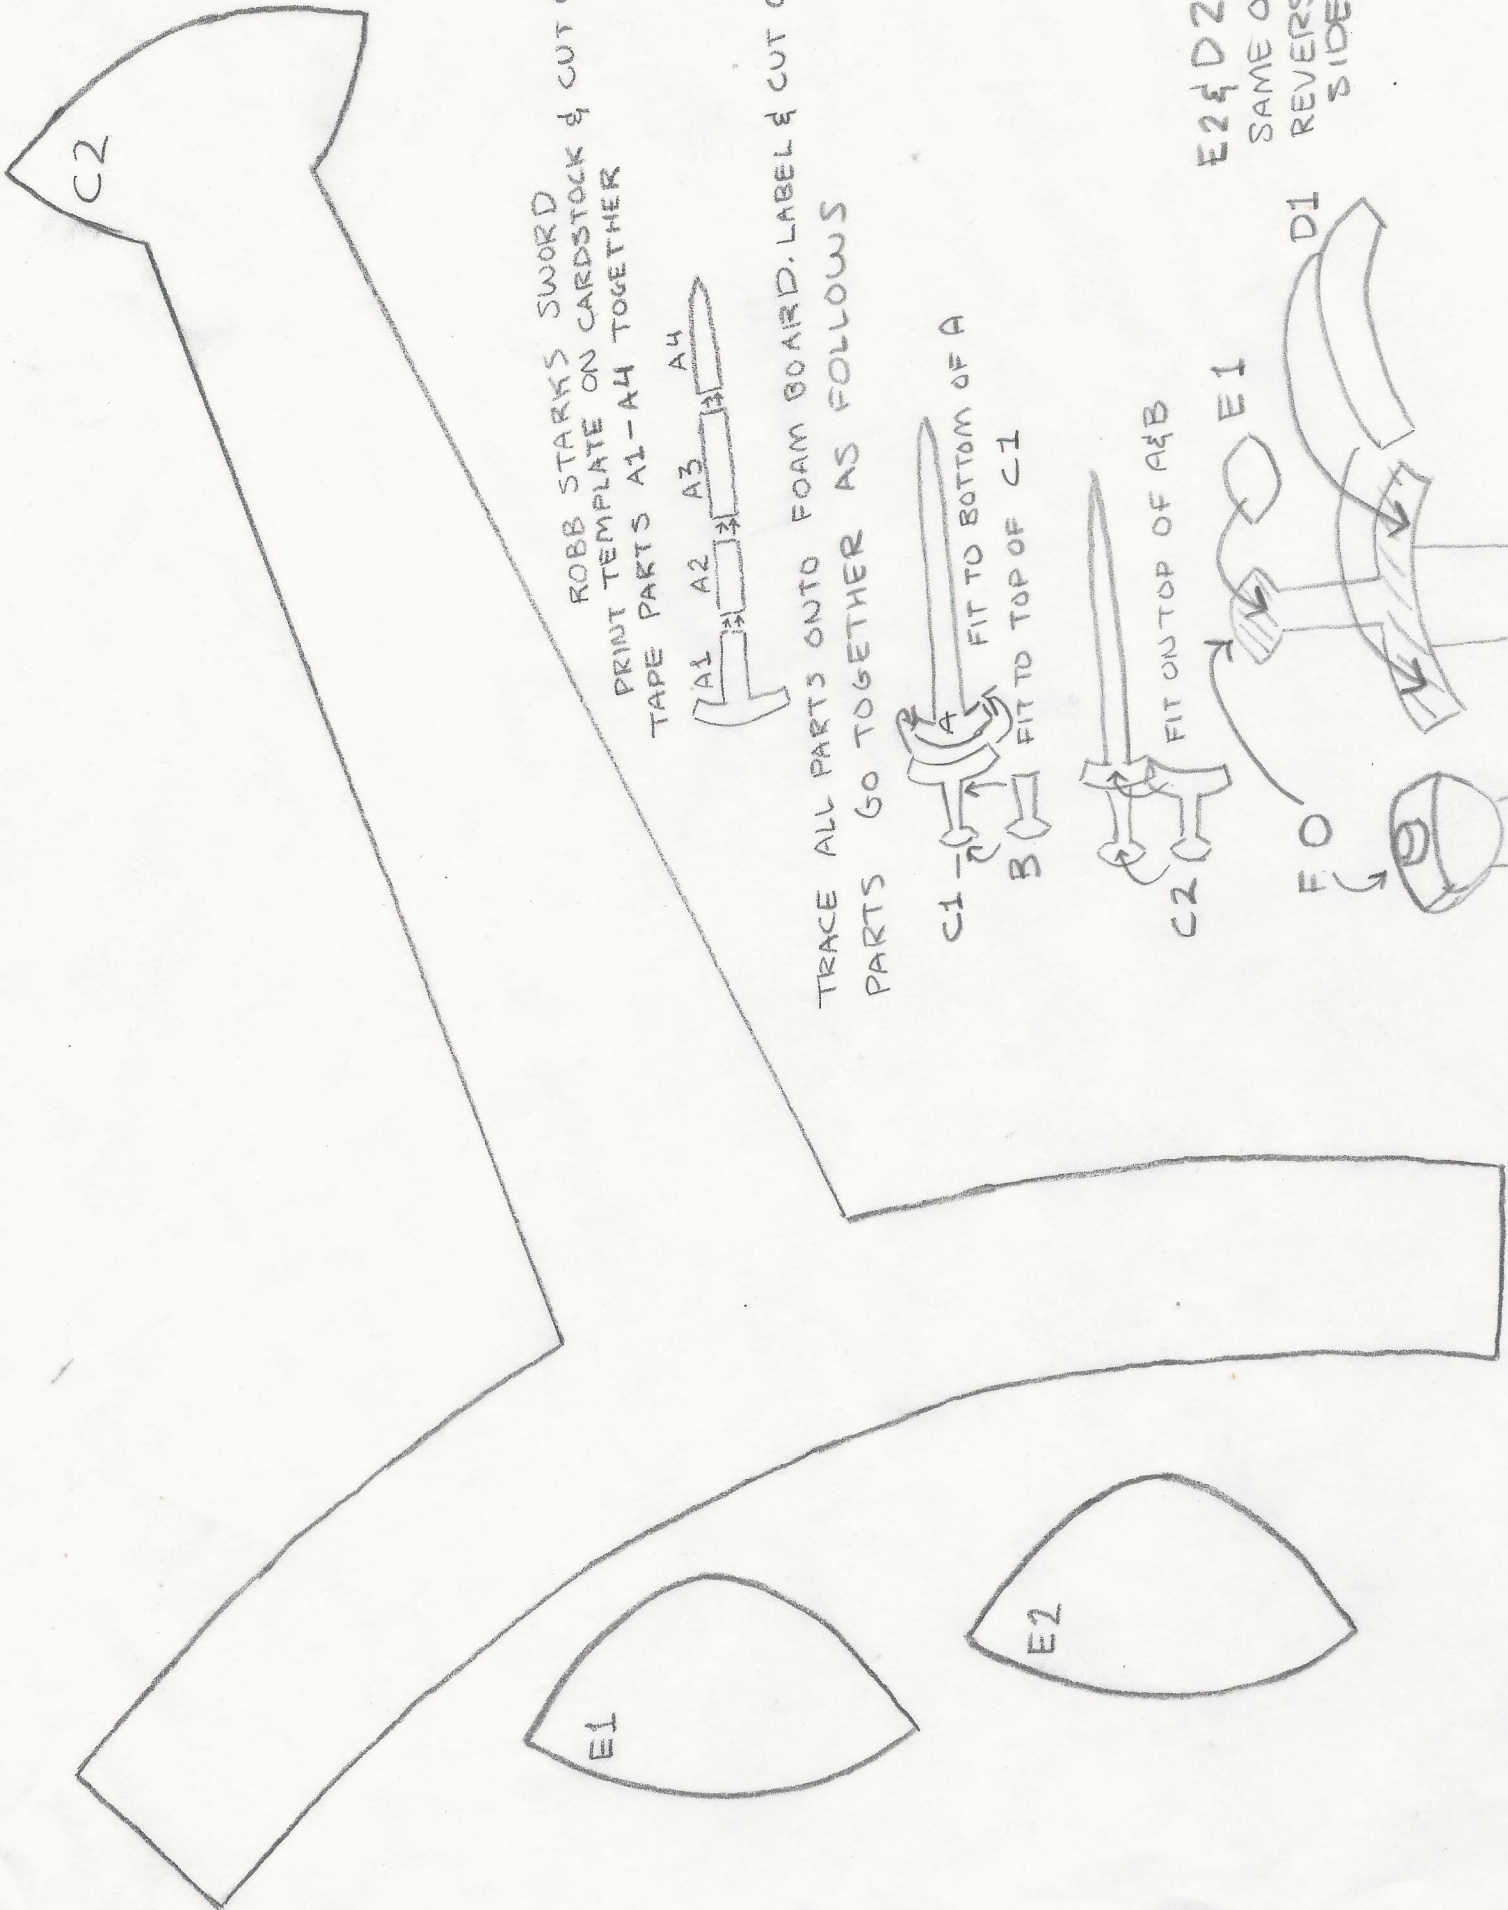 C2
ROBB STARKS SWORD
PRINT TEMPLATE ON CARDSTOCK & CUT
TAPE PARTS A1-A4 TOGETHER
A1 A2 A3 A4
TRACE ALL PARTS ONTO FOAM BOARD. LABEL & CUT
PARTS GO TOGETHER AS FOLLOWS
A
C1
B
FIT TO BOTTOM OF A
FIT TO TOP OF C1
C2
FIT ON TOP OF A&B
F
E1
D1
E2 & D2
SAME O
REVERS
SIDE
E1
E2